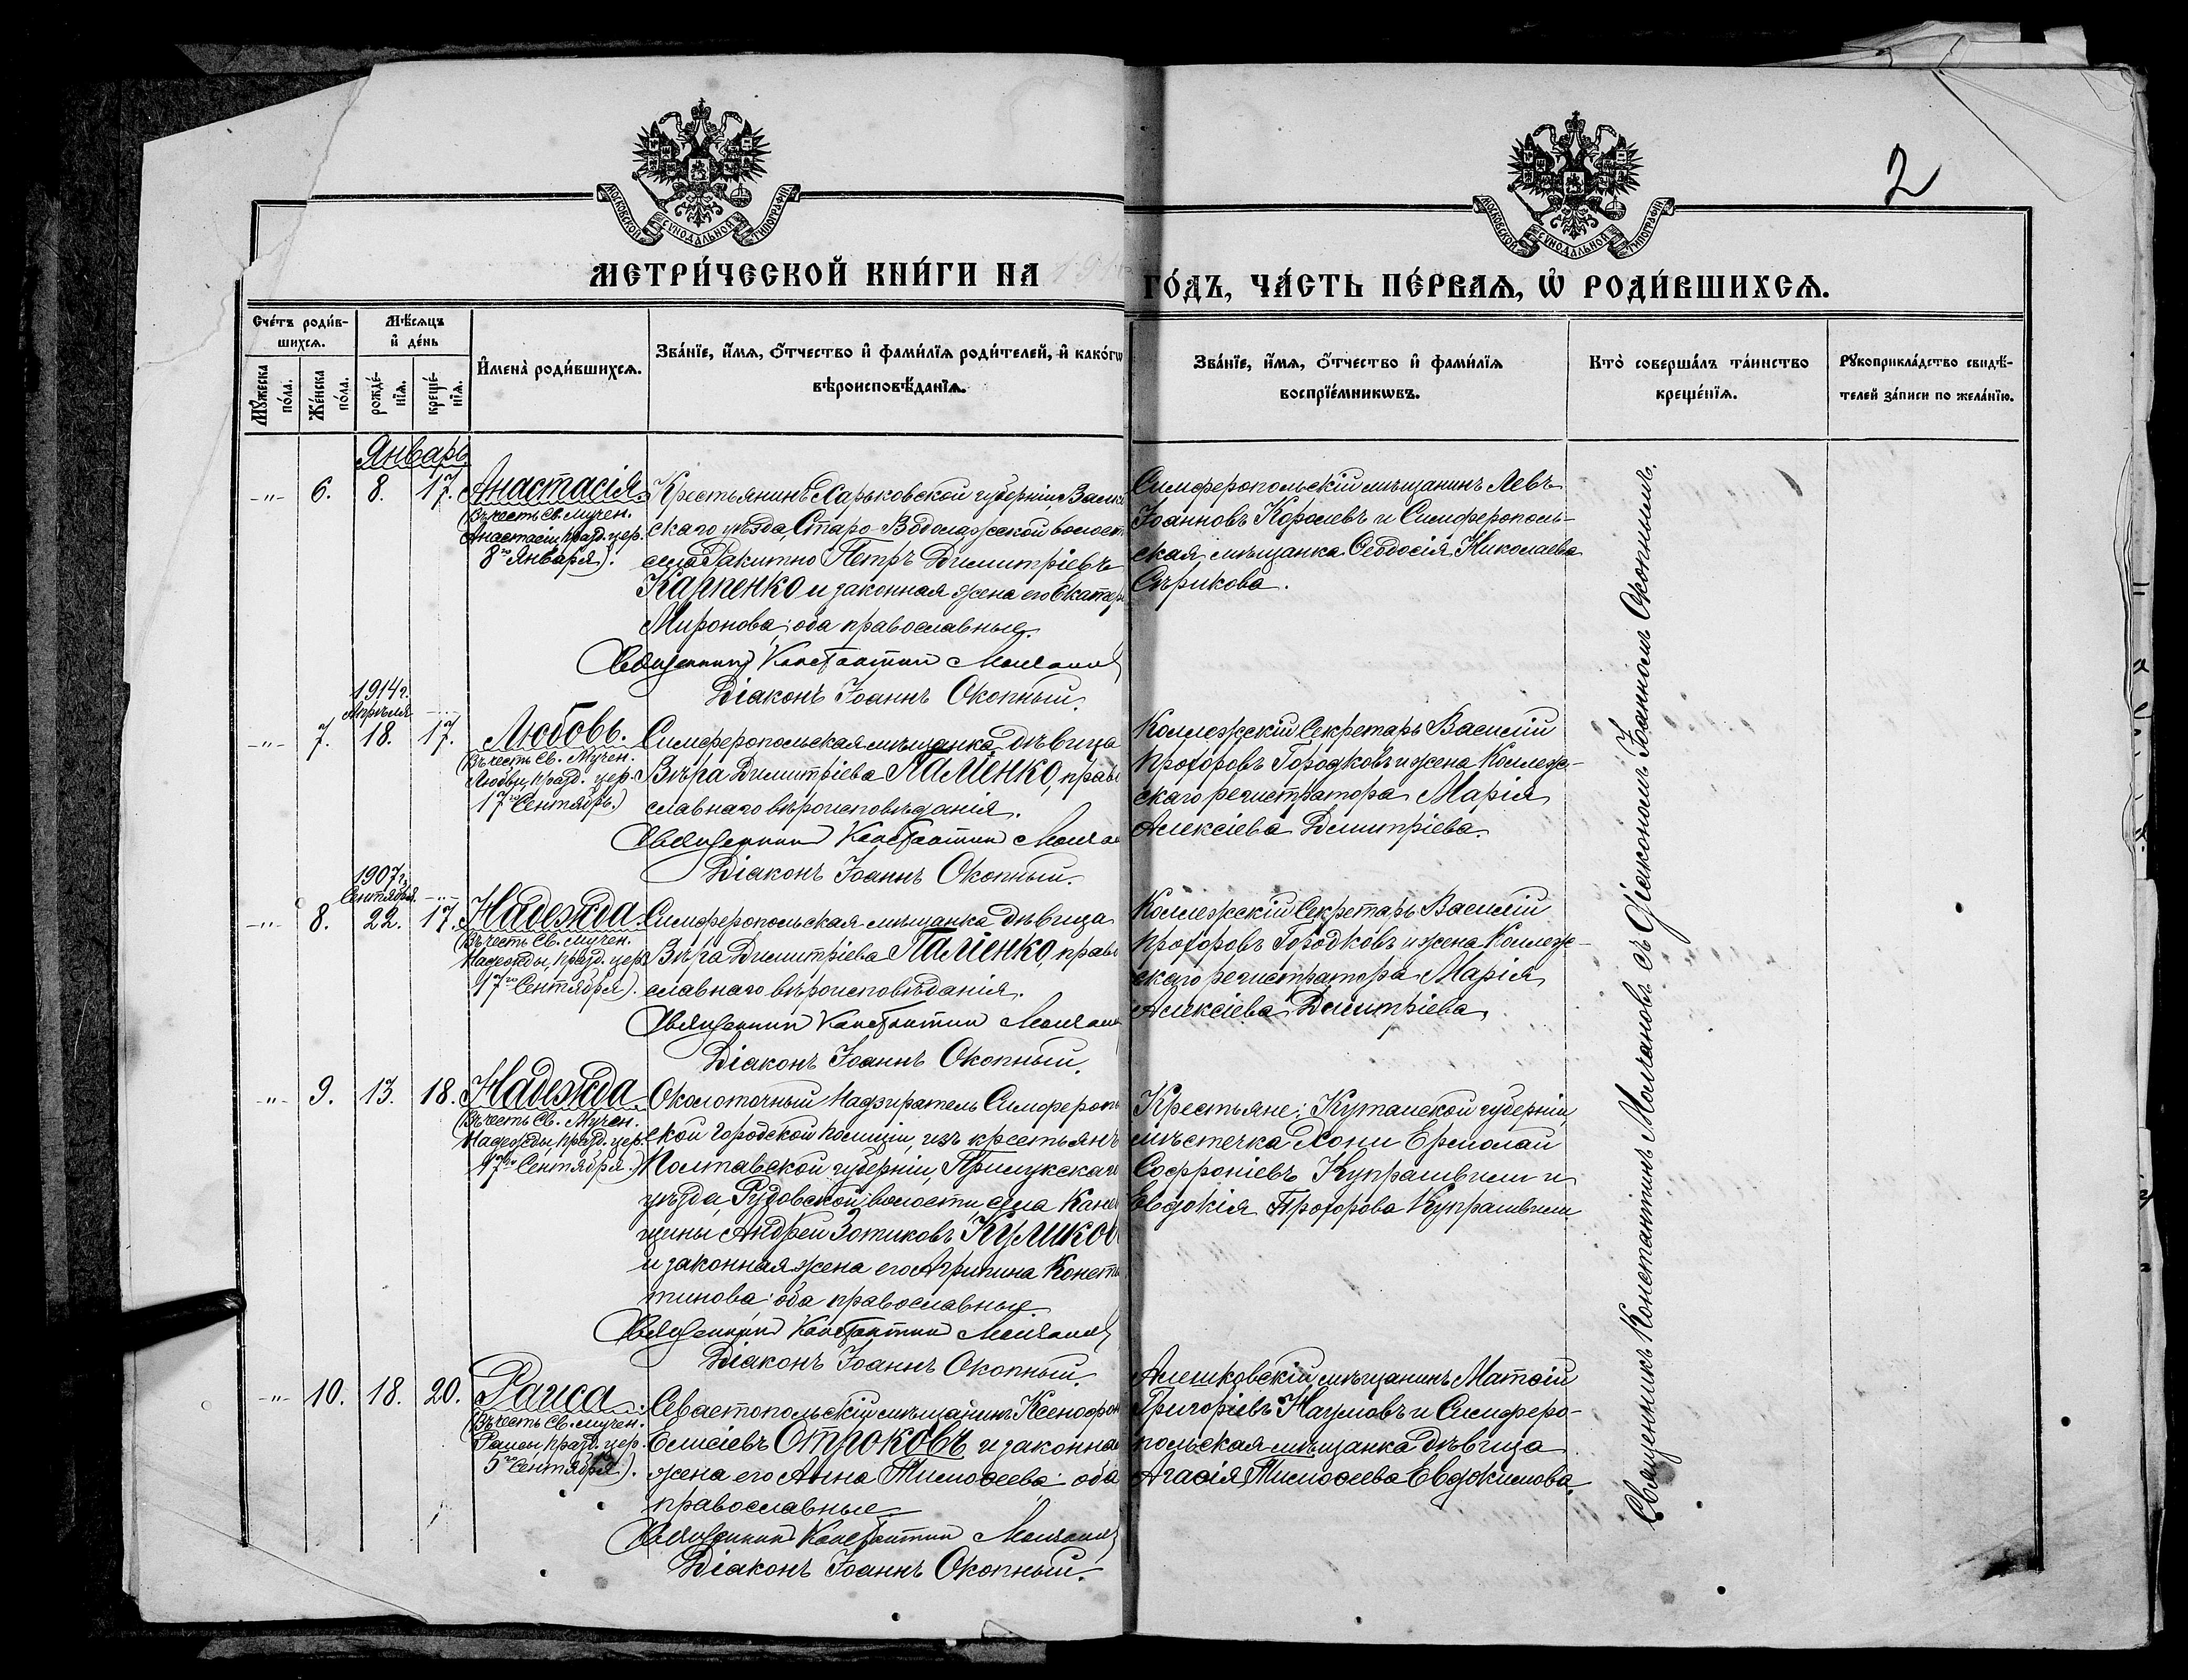 2
МОСКОВСКОЙ СѴНОДАЛЬНОЙ ТИПОГРАФІИ
МОСКОВСКОЙ СѴНОДАЛЬНОЙ ТИПОГРАФІИ
МЕТРИ́ЧЕСКОЙ КНИ́ГИ НА
ГО́ДЪ, ЧА́СТЬ ПЕ́РВАѦ, Ѡ҆ РОДИ́ВШИХСѦ.
Сче́тъ роди́в-
шихсѧ.
Мѣ́сѧцъ
и҆ де́нь
Мꙋ́жеска по́ла.
Же́нска по́ла.
рожде́-нїѧ.
креще́-нїѧ.
И҆мена̀ роди́вшихсѧ.
Зва́нїе, и҆́мѧ, ѻ҆́тчество и҆ фами́лїѧ роди́телей, и҆ како́гѡ
вѣроисповѣ́данїѧ.
Зва́нїе, и҆́мѧ, ѻ҆́тчество и҆ фами́лїѧ
воспрїе́мникѡвъ.
Кто̀ соверша́лъ та́инство
креще́нїѧ.
Рꙋкоприкла́дство свидѣ́-
телей за́писи по жела́нїю.
Январь
-"- 6. 8. 17. Анастасія.
(Въ честь Св. Мучен.
Анастасіи, празд. цер.
8го Января).
Крестьянинъ Харьковской губерніи, Валк
скаго уѣзда, Старо-Водолажской волост
села Ракитно Петръ Димитріевъ
Карпенко и законная жена его Екатер
Миронова; оба православные.
Священникъ Константинъ Молчанов
Діаконъ Іоаннъ Окопный.
Симферопольскій мѣщанинъ Левъ
Іоанновъ Королевъ и Симферополь-
ская мѣщанка Ѳеодосія Николаева
Сѣрикова.
1914 г.
Апрѣля
-"- 7. 18. 17. Любовь.
(Въ честь Св. Мучен.
Любви, празд. цер.
17го Сентября.)
Симферопольская мѣщанка дѣвица
Вѣра Димитріева Паліенко, прав
славнаго вѣроисповѣданія.
Священникъ Константинъ Молча
Діаконъ Іоаннъ Окопный.
Коллежскій Секретарь Василій
Прохоровъ Городковъ и жена Коллеж-
скаго регистратора Марія
Алексіева Димитріева.
1907 г.
Сентября.
-"- 8. 22. 17. Надежда.
(Въ честь Св. Мучен.
Надежды, празд. цер.
17го Сентября).
Симферопольская мѣщанка дѣвица
Вѣра Димитріева Паліенко, прав
славнаго вѣроисповѣданія.
Священникъ Константинъ Молчан
Діаконъ Іоаннъ Окопный.
Коллежскій Секретарь Василій
Прохоровъ Городковъ и жена Коллеж-
скаго регистратора Марія
Алексіева Димитріева.
-"- 9. 13. 18. Надежда.
(Въ честь Св. Мучен.
Надежды, празд. цер.
17го Сентября.)
Околоточный Надзиратель Симфероп
ской городской полиціи, изъ крестьянъ
Полтавской губерніи, Прилукскаго
уѣзда, Рудовской волости, села Кане
щины Андрей Зотиковъ Куликов
и законная жена его Агрипина Конст
тинова: оба православные.
Священникъ Константинъ Молчанов
Діаконъ Іоаннъ Окопный.
Крестьяне: Кутаиской губерніи,
мѣстечка Хони Ермолай
Софроніевъ Купрашвили и
Евдокія Прохорова Купрашвили
-"- 10. 18. 20. Раиса.
(Въ честь Св. мучен.
Раисы празд. цер.
5го Сентября).
Севастопольскій мѣщанинъ Ксенофон
Елисіевъ Отроковъ и законна
жена его Анна Тимоѳеева: оба
православные.
Священникъ Константинъ Молчанов
Діаконъ Іоаннъ Окопный.
Алешковскій мѣщанинъ Матѳій
Григоріевъ Наумовъ и Симферо-
польская мѣщанка дѣвица
Агаѳія Тимоѳеева Евдокимова.
Священникъ Константинъ Молчановъ съ Діакономъ Іоанномъ Окопнымъ.